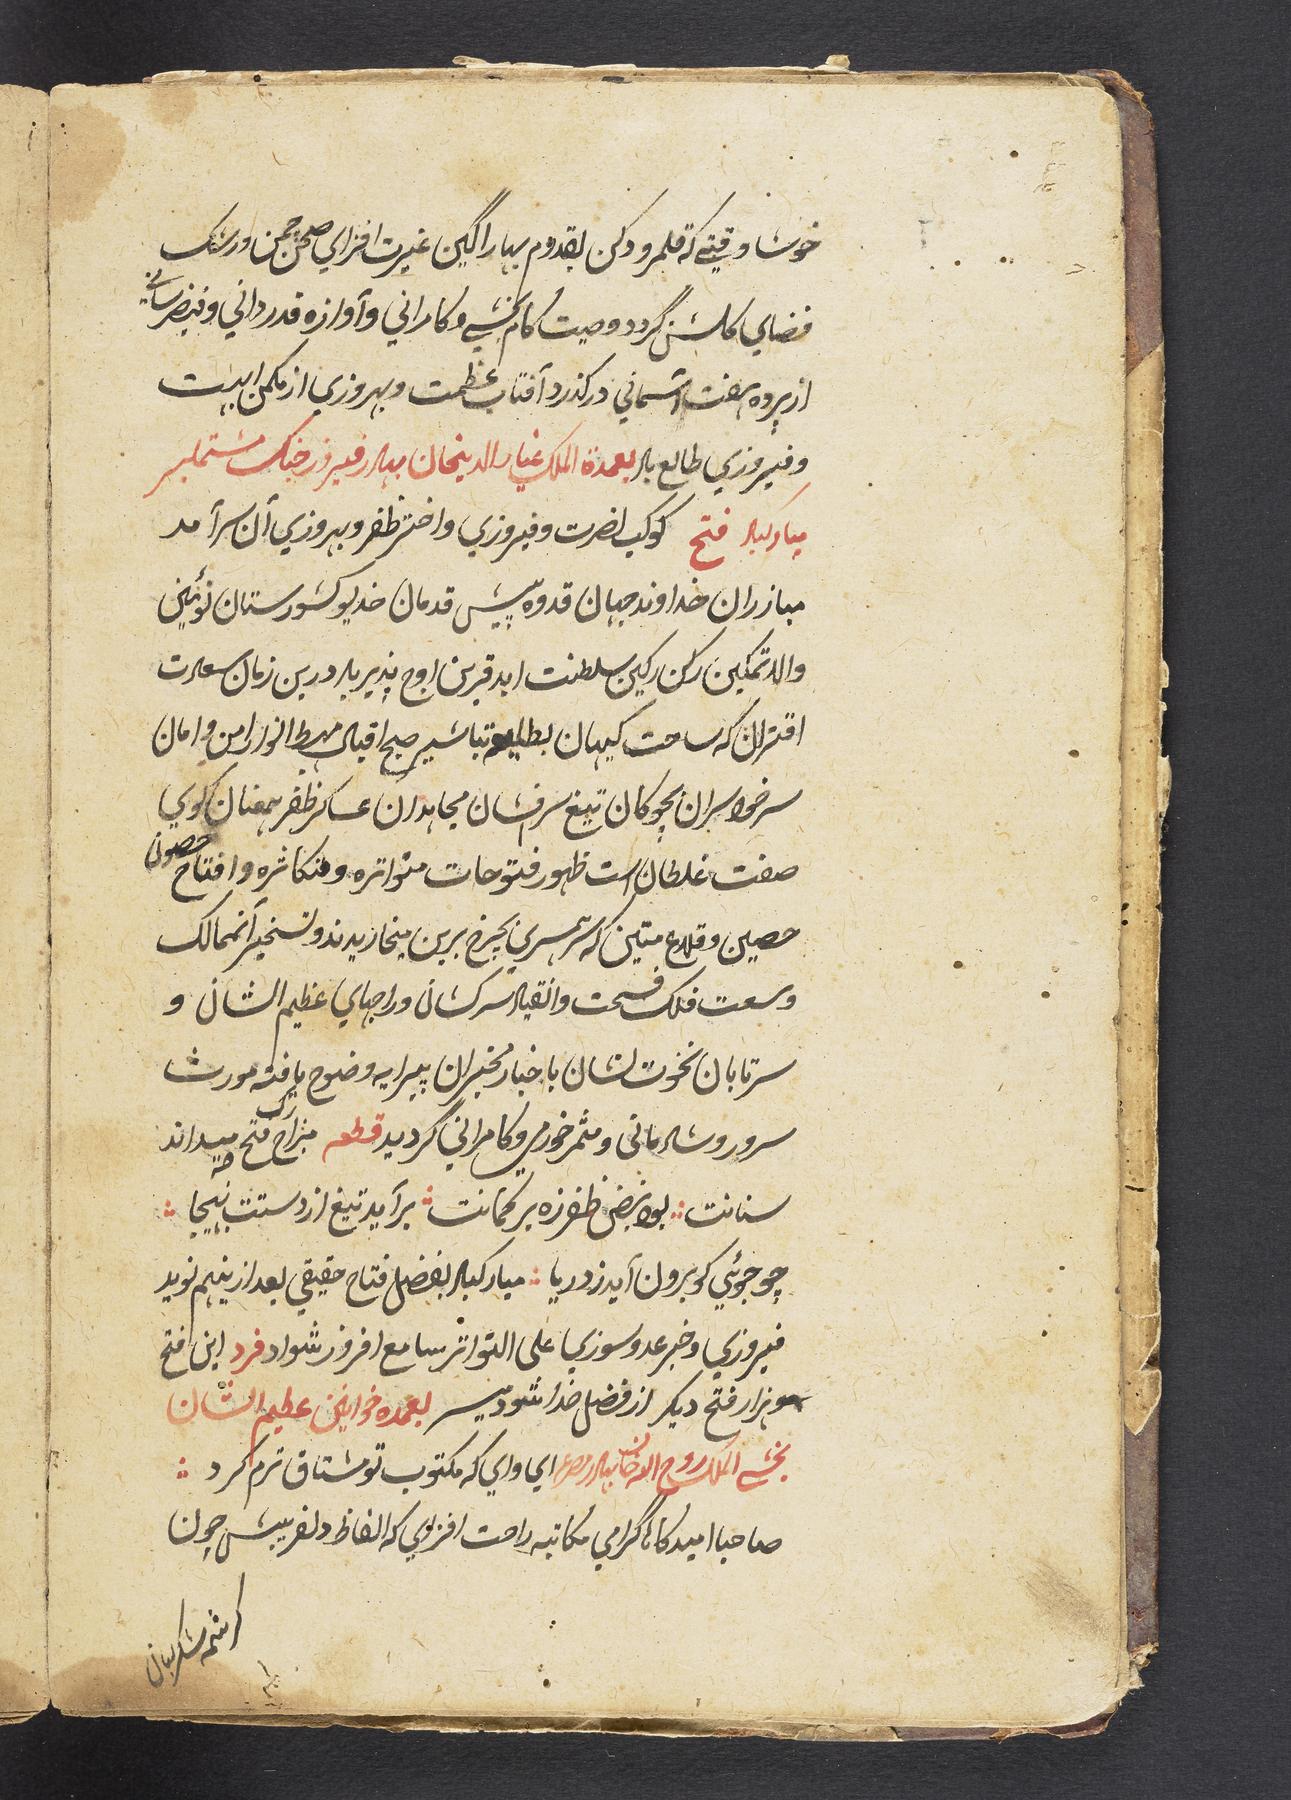 خوشا وقتیکه قلمرو دکن بقدوم بهار آگین غیرت افزای صحن چمن و رشک
فضای گلشن گردد وصیت کام بخشی و کامرانی و آوازه قدردانی و فیض رسانی
از پرده هفت آسمانی درگذرد آفتاب عظمت و بهروزی از مکمن ابهت
و فیروزی طالع باد بعمدة الملک غیاث الدینخان بهادر فیروز جنگ مشتملبر
مبارکباد فتح کوکب نصرت و فیروزی و اختر ظفر و بهروزی آن سرآمد
مبازران خداوند جهان قدوه پیش قدمان خدیو کشورستان نوئین
والا تمکین رکن رکین سلطنت ابد قرین اوج پذیر باد درین زمان سعادت
اقتران که ساحت کیهان بطلیعه تباشیر صبح اقبال مهبط انوار امن و امان
سر خودسران بچوکان تیغ سرفشان مجاهدان عساکر ظفر همعنان کوی
صفت غلطان است ظهور فتوحات متواتره و متکاثره و افتتاح حصون
حصین و قلاع متین که سر همسری بچرخ برین میخاریدند و تسخیر آنممالک
وسعت فلک فسحت و انقیاد سرکشان و راجهای عظیم الشان و
سرتابان نخوت نشان باخبار مخبران پیرایه وضوح یافته مورث
سرور و شادمانی و مثمر خورمی و کامرانی گردید قطعه مزاج فتح میداند
سنانت ∴ بود نبض ظفر زه بر کمانت ∴ برآید تیغ از دستت بهیجا ∴
چو جوئی کو برون آید ز دریا ∴ مبارکباد بفضل فتاح حقیقی بعد ازینهم نوید
فیروزی و خبر عدو سوزی علی التواتر سامع افروز شواد فرد این فتح
و هزار فتح دیگر از فضل خدا شود میسر بعمده خوانین عظیم الشان
بخشی الملک روح الله خان بهادر مصرع ای وای که مکتوب تو مشتاق ترم کرد ∴
صاحبا امیدکاها گرامی مکاتبه راحت افزای که الفاظ دلفریبش چون
کرشمه شکر لبان